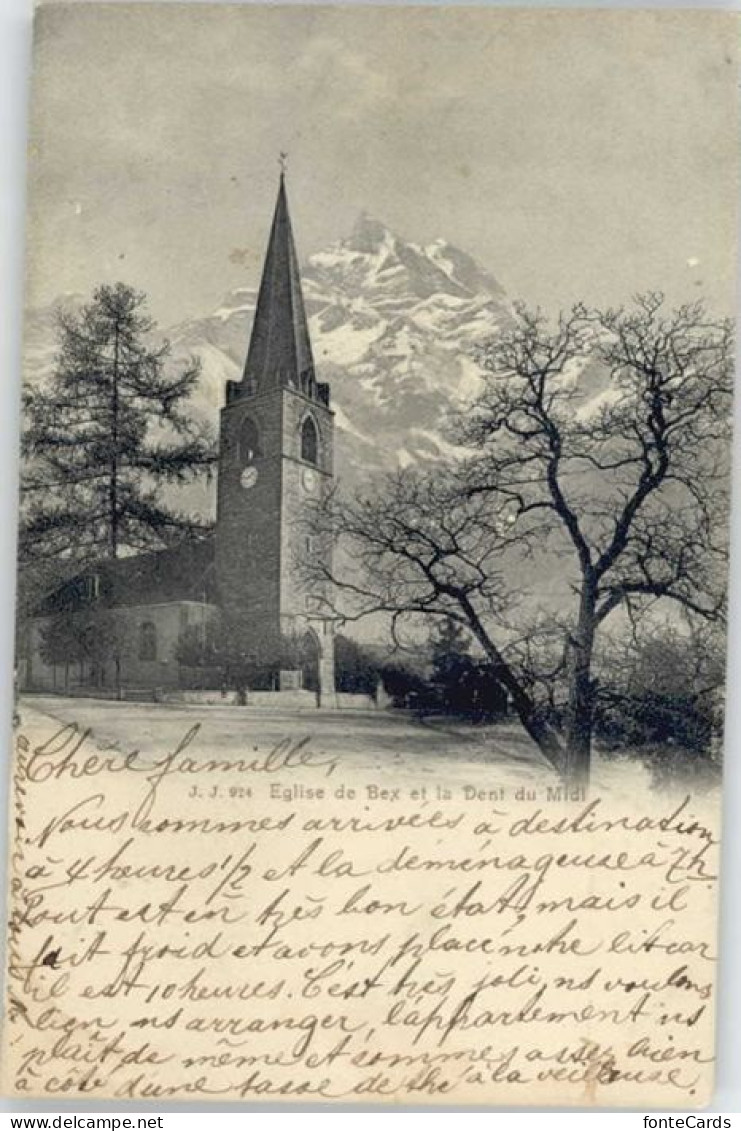 Chère famille,
J. J. 924 Eglise de Bex et la Dent du Midi
Nous sommes arrivées à destination
à 4 heures 1/2 et la déménageuse à 7h
Tout est en très bon état, mais il
fait froid et avons placé notre lit car
il est 10 heures. C'est très joli, ns voulons
bien ns arranger, l'appartement ns
plaît de même et sommes assez bien
à côté d'une tasse de thé à la veilleuse.
fonteCards
fonteCards